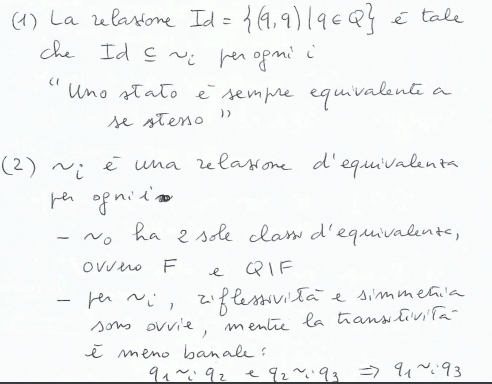 (1) La relazione Id = {(q,q) | q ∈ Q} è tale
che Id ⊆ ~i per ogni i
"Uno stato è sempre equivalente a
se stesso"
(2) ~i è una relazione d'equivalenza
per ogni i
- ~0 ha 2 sole classi d'equivalenza,
ovvero F e Q\F
- per ~i, riflessività e simmetria
sono ovvie, mentre la transitività
è meno banale:
q1 ~i q2 e q2 ~i q3 ⇒ q1 ~i q3